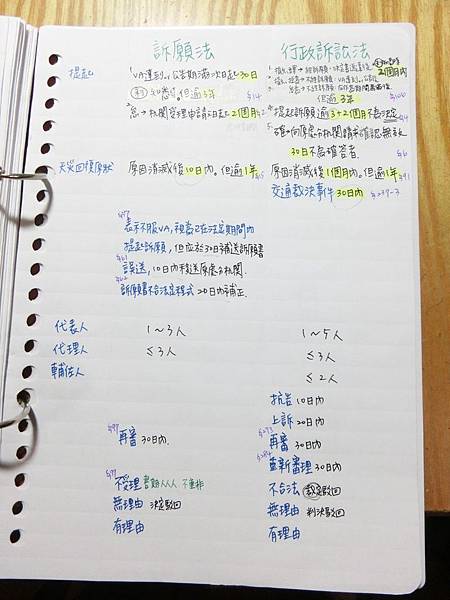 訴願法
行政訴訟法
提起
1. VA達到or公告期滿之次日起30日
知悉 但逾3年 §14
2個月內
但逾3年 §106
2. 機關受理申請之日起2個月 §2
4. 提起訴願逾3+2個月不為決定 §4
確認
向原處分機關請求確認無效
30日不為確答者 §6
天災回復原狀
原因消滅後10日內，但逾1年
原因消滅後1個月內，但逾1年 §91
交通裁決事件30日內 §237-3
§57
表示不服VA，視為已在法定期間內
提起訴願，但應於30日補送訴願書
§61
誤送，10日內移送原處分機關.
§62
訴願書不合法定程式20日內補正.
代表人 1~3人 1~5人
代理人 ≤3人 ≤3人
輔佐人 ≤2人
抗告10日內
上訴20日內
§97
再審30日內.
§273
再審30日內
§284
重新審理30日內
不受理
不合法 裁定駁回
無理由 決定駁回
無理由 判決駁回
有理由
有理由